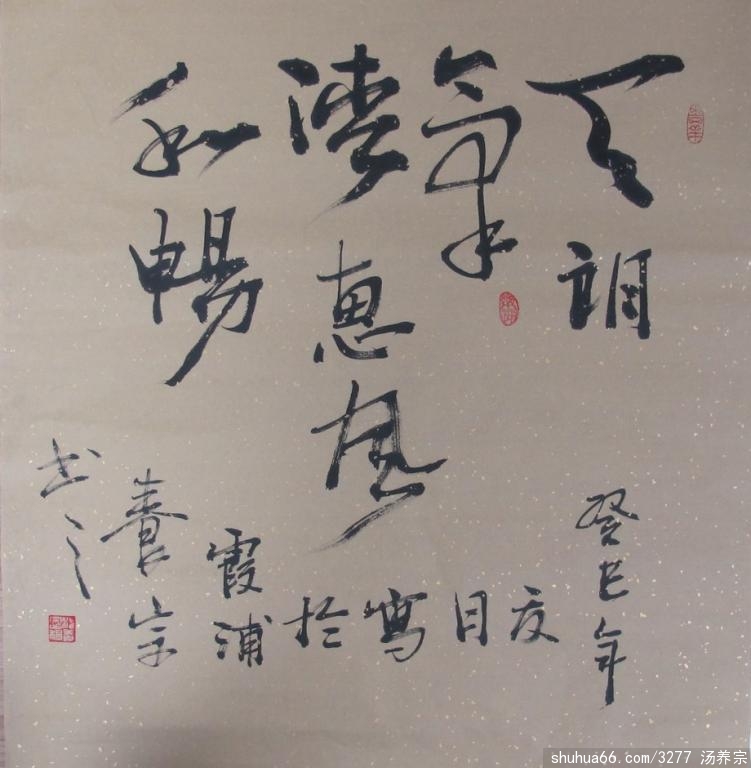 天朗
氣
清惠風
和暢
癸巳年
夏
日
寫
於
霞浦
養宗
书之
shuhua66.com/3277 汤养宗